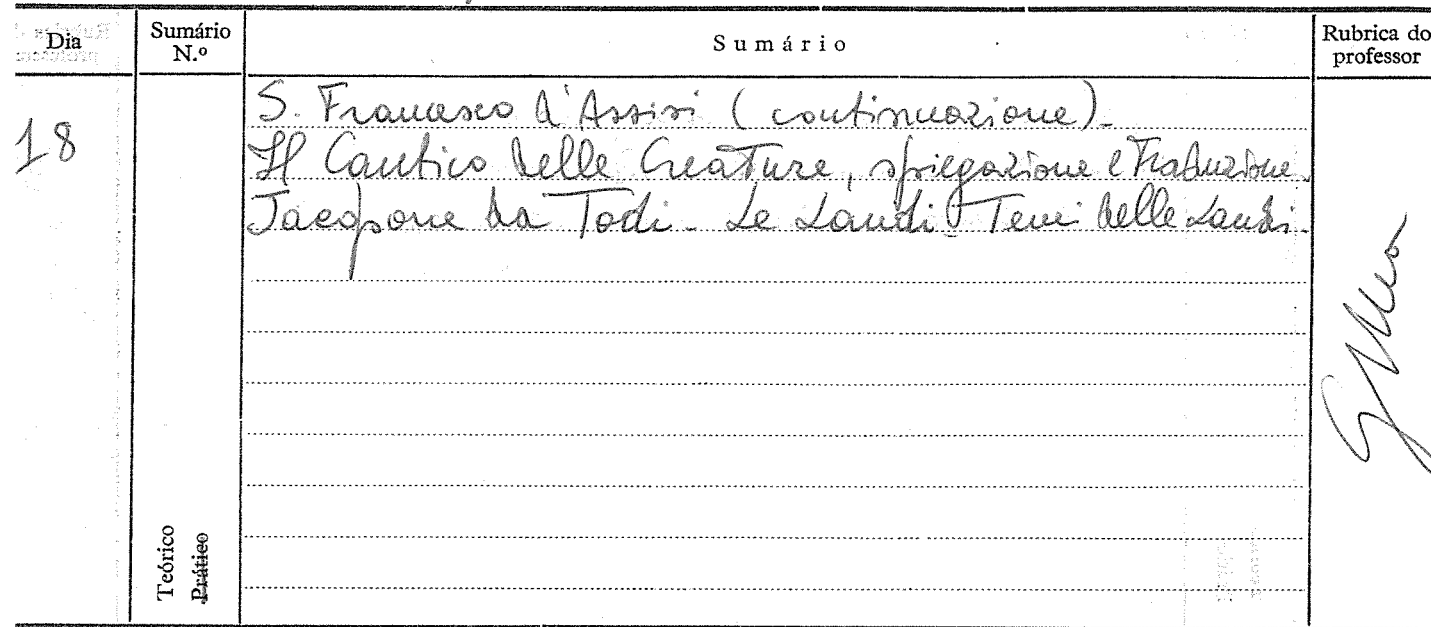 Dia
Sumário N.º
Sumário
Rubrica do professor
18
S. Francesco d'Assisi (continuazione)-
Il Cantico delle Creature, spiegazione e traduzione.
Jacopone da Todi - Le Laudi - Temi delle Laudi.
Teórico
Prático